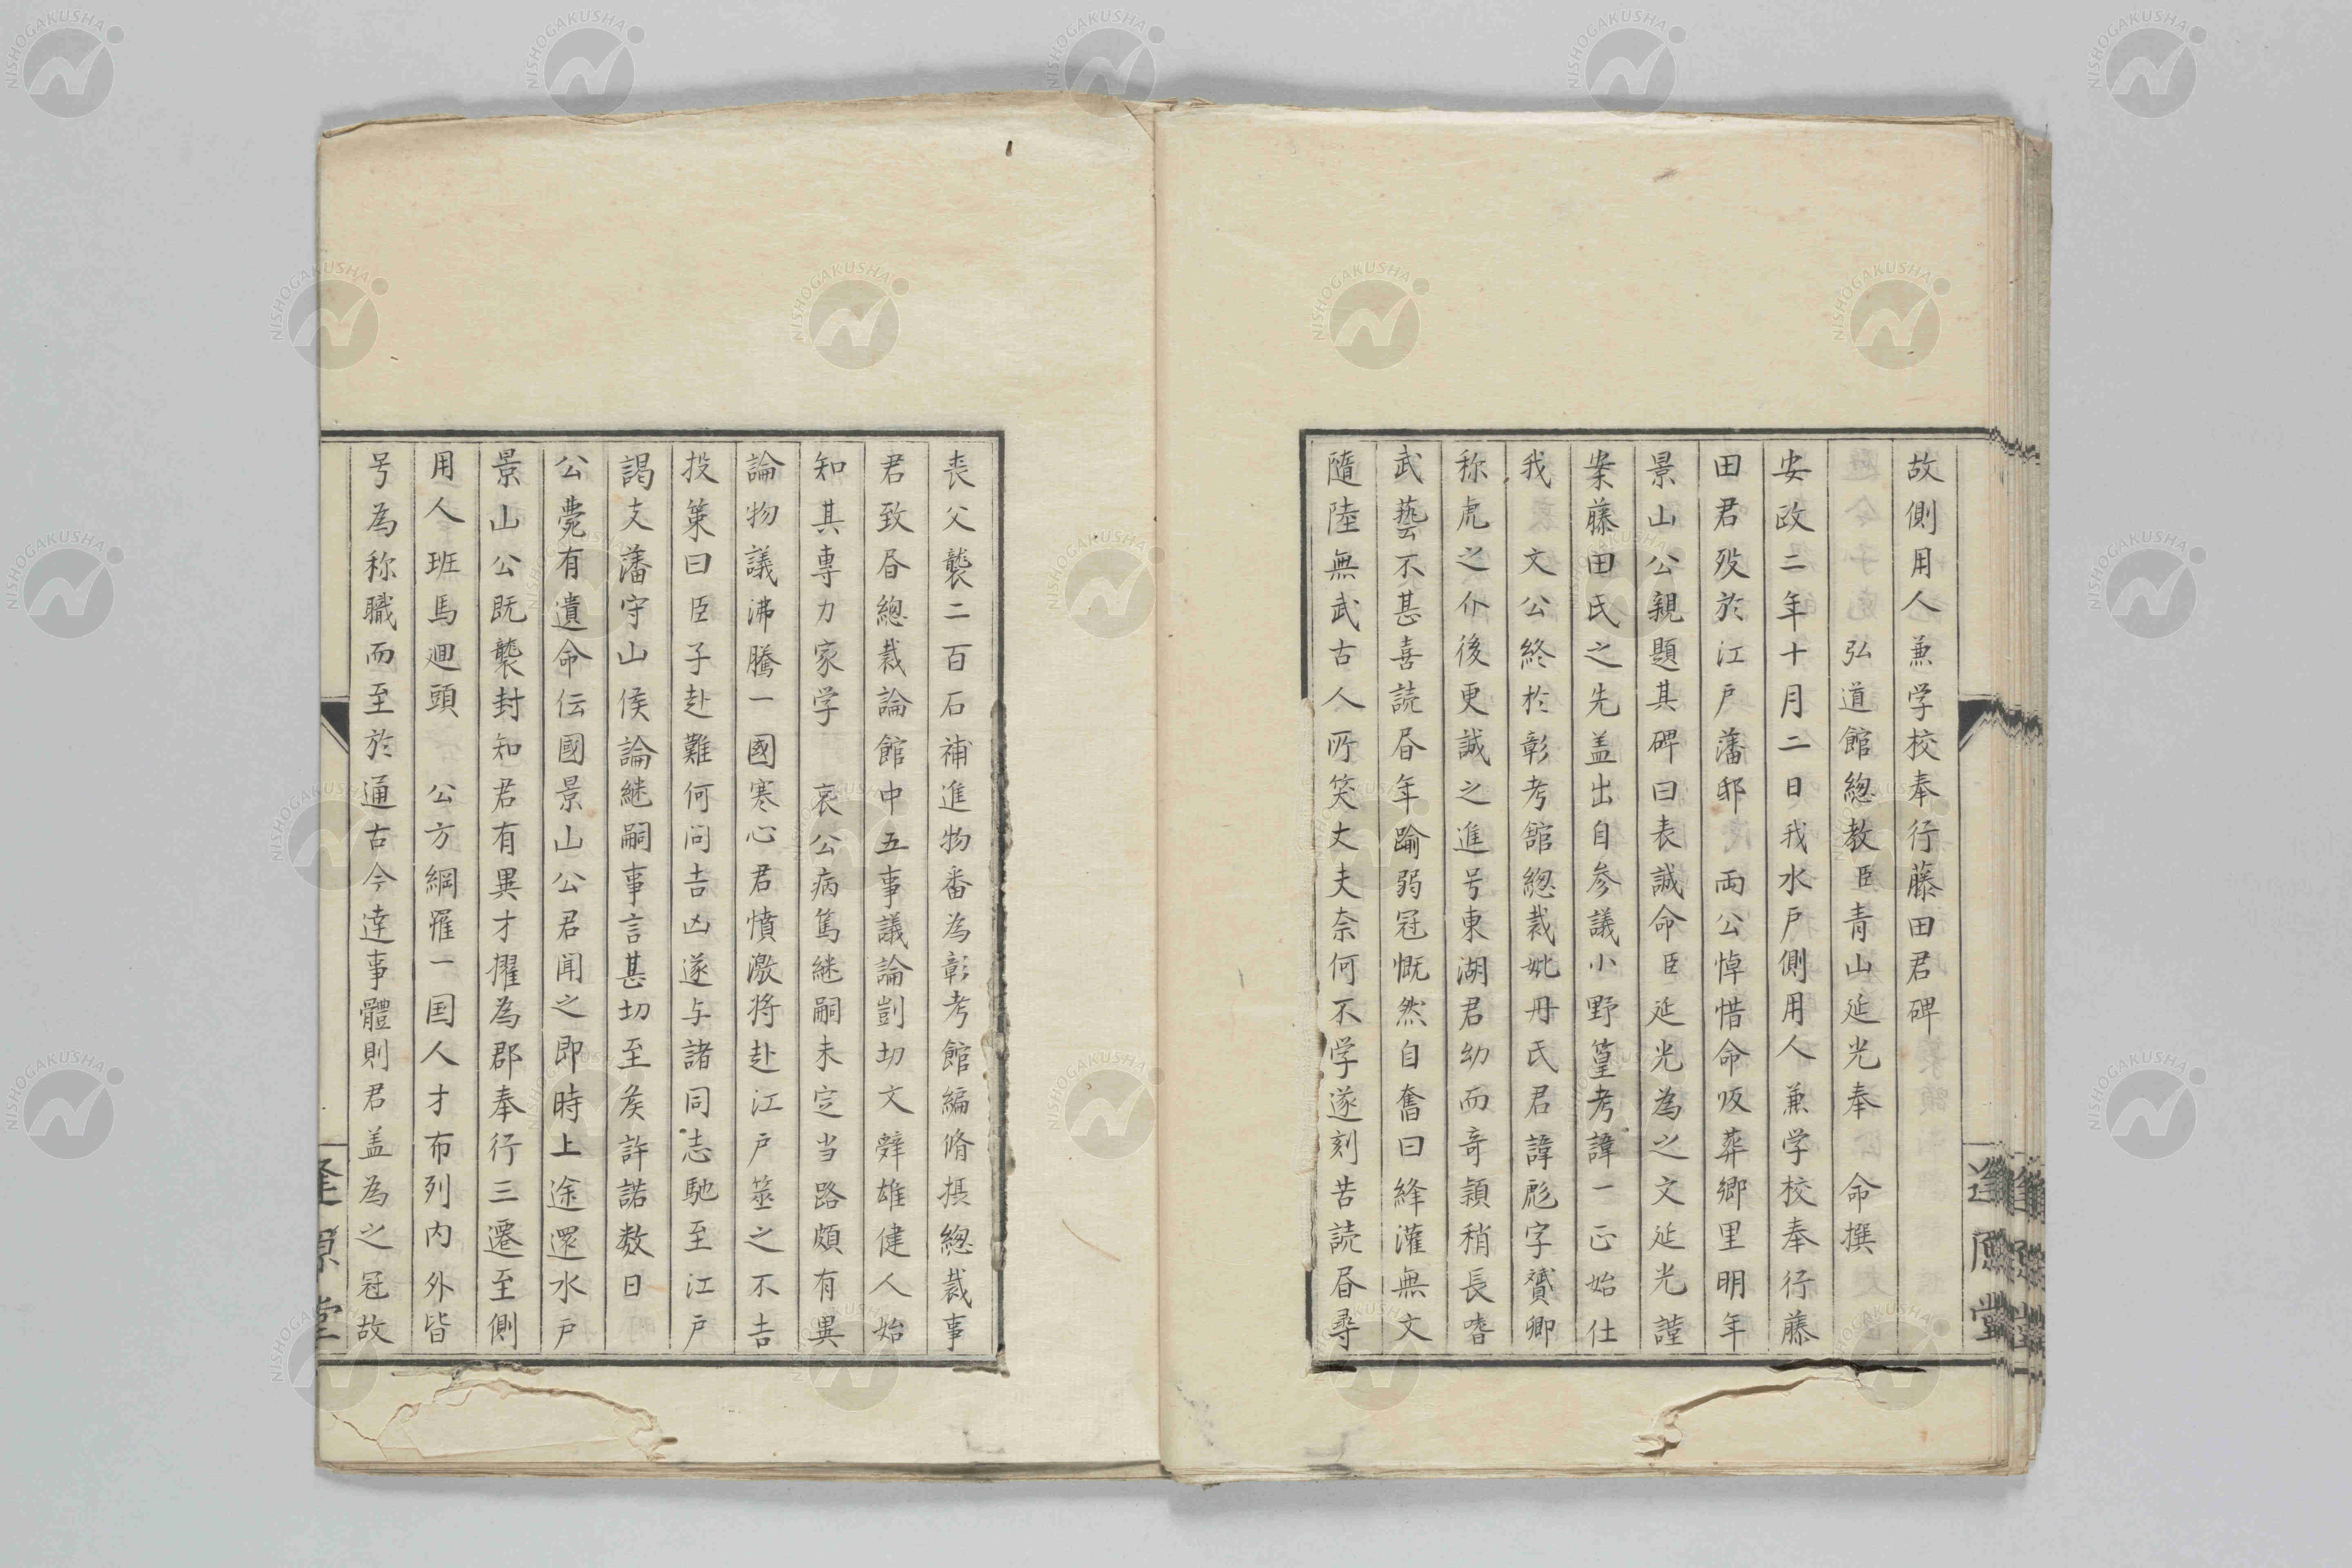 故側用人兼学校奉行藤田君碑
弘道館総教臣青山延光奉 命撰
安政二年十月二日我水戸側用人兼学校奉行藤
田君歿於江戸藩邸 両公悼惜命皈葬郷里明年
景山公親題其碑曰表誠命臣延光為之文延光謹
案藤田氏之先盖出自参議小野篁考諱一正始仕
我 文公終於彰考館総裁妣丹氏君諱彪字贇卿
称虎之介後更誠之進号東湖君幼而奇頴稍長嗜
武藝不甚喜読昼年踰弱冠慨然自奮曰絳灌無文
隨陸無武古人所笑丈夫奈何不学遂刻苦読昼尋
丧父襲二百石補進物番為彰考館編脩摂総裁事
君致昼総裁論館中五事議論剴切文辤雄健人始
知其專力家学 哀公病篤継嗣未定当路頗有異
論物議沸騰一國寒心君憤激将赴江戸筮之不吉
投筞曰臣子赴難何問吉凶遂与諸同志馳至江戸
謁支藩守山侯論継嗣事言甚切至矦許諾数日
公薨有遺命伝國景山公君聞之即時上途還水戸
景山公既襲封知君有異才擢為郡奉行三遷至側
用人班馬廻頭 公方綱羅一国人才布列内外皆
号為称職而至於通古今達事體則君盖為之冠故
逢原堂
逢原堂
NISHOGAKUSHA